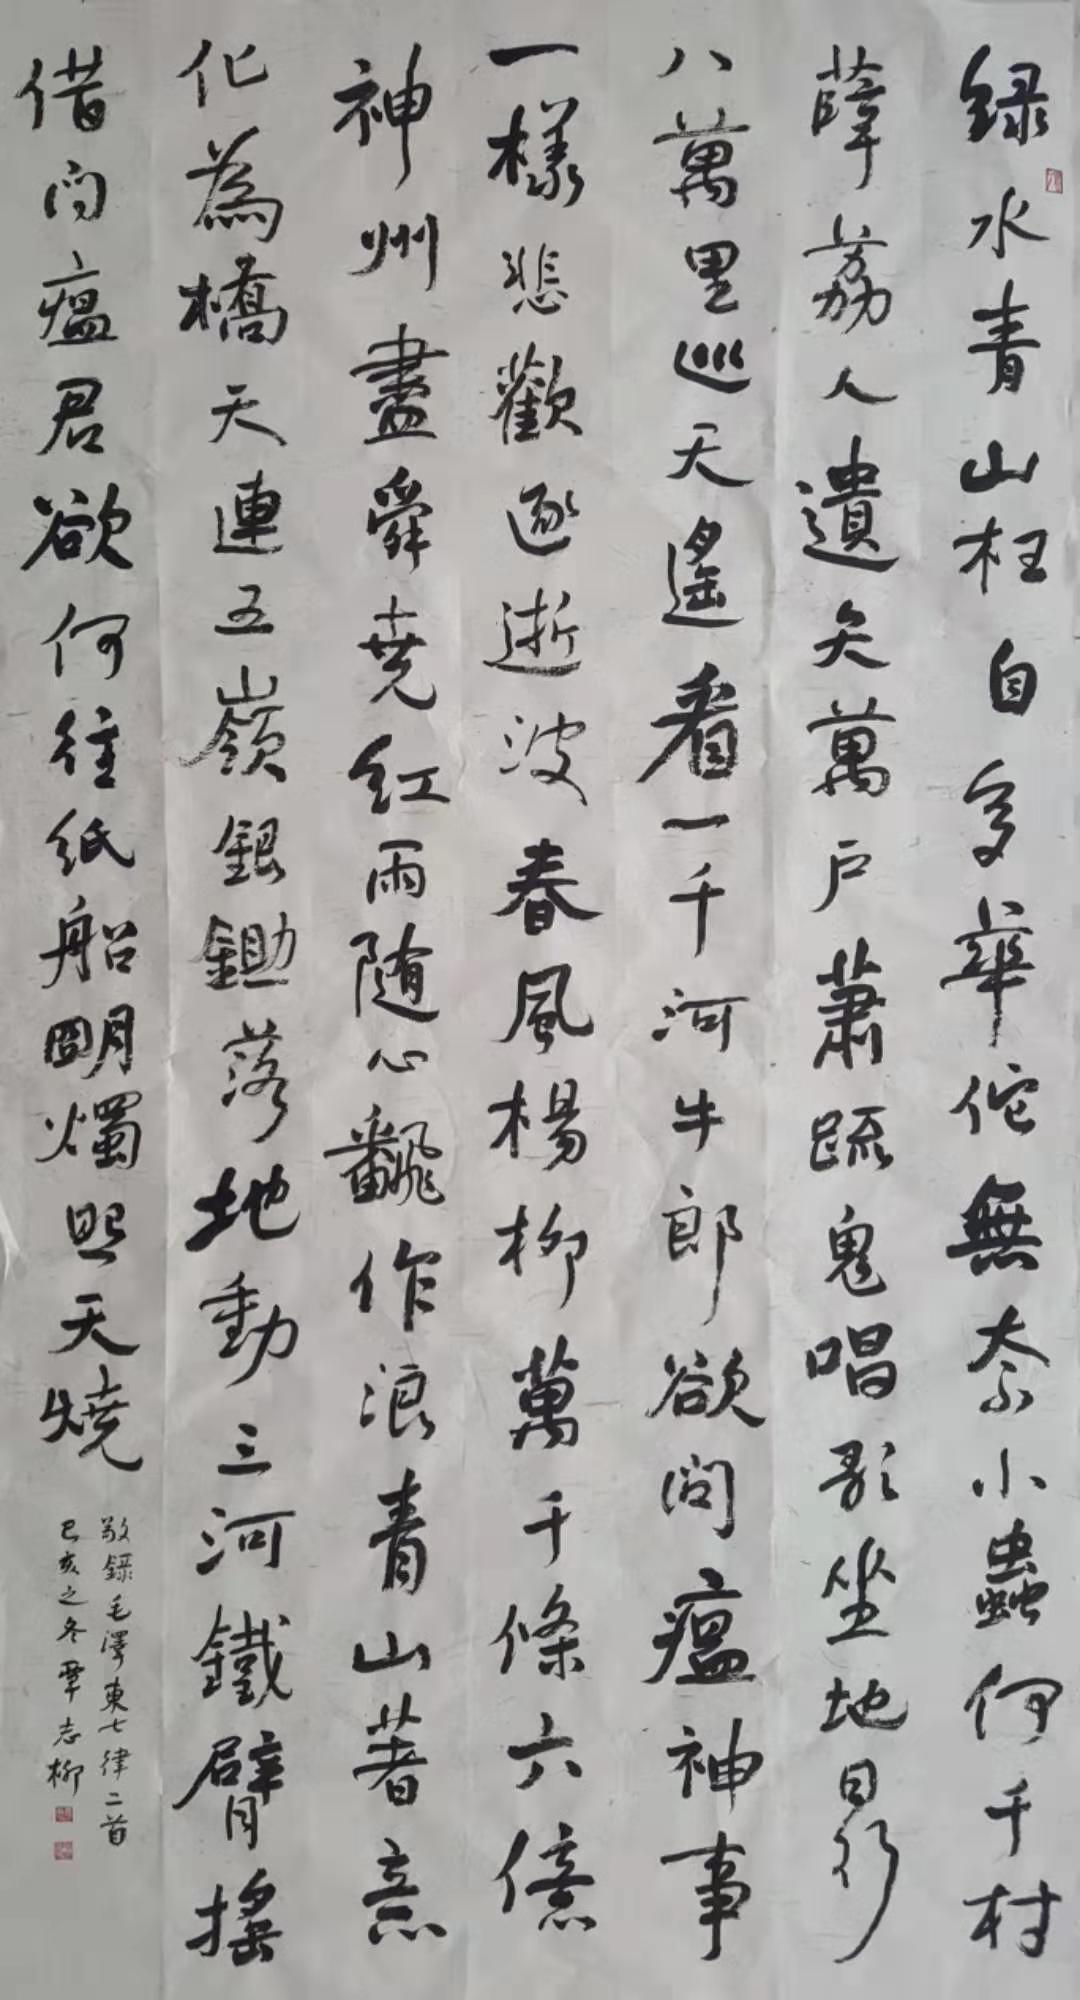 綠水青山枉自多華佗無奈小蟲何千村
薜荔人遺矢萬戶蕭疏鬼唱歌坐地日行
八萬里巡天遙看一千河牛郎欲問瘟神事
一樣悲歡逐逝波春風楊柳萬千條六億
神州盡舜堯紅雨隨心翻作浪青山著意
化為橋天連五嶺銀鋤落地動三河鐵臂搖
借問瘟君欲何往紙船明燭照天燒
敬錄毛澤東七律二首
己亥之冬覃志柳